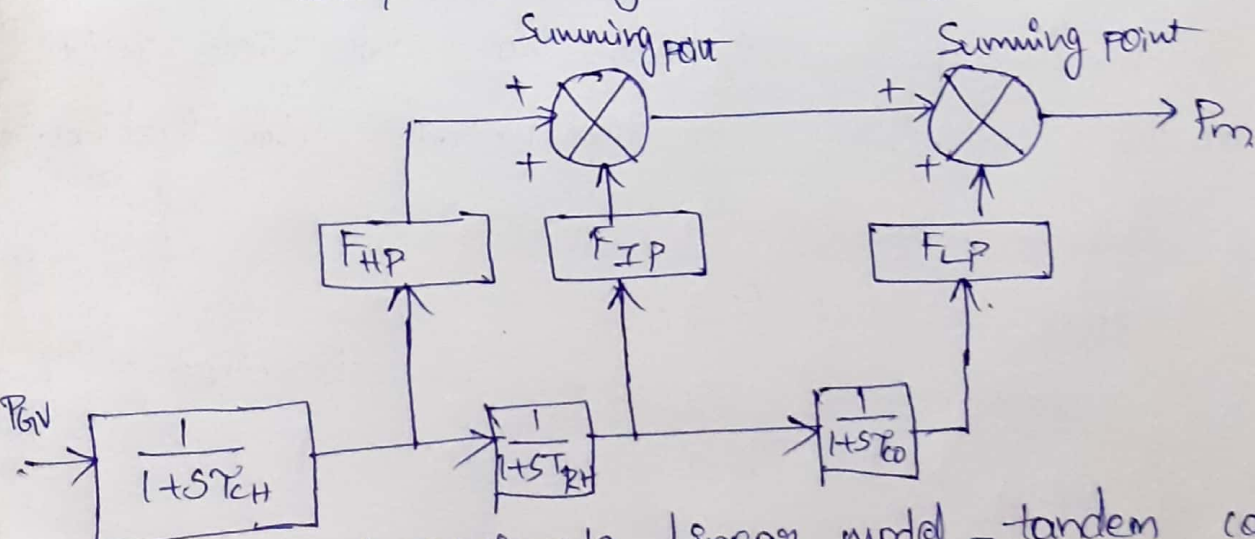 Summing point Summing point
+ + Pm
+ +
FHP FIP FLP
PGV
1 1 1
1+STCH 1+STRH 1+STCO
linear model tandem